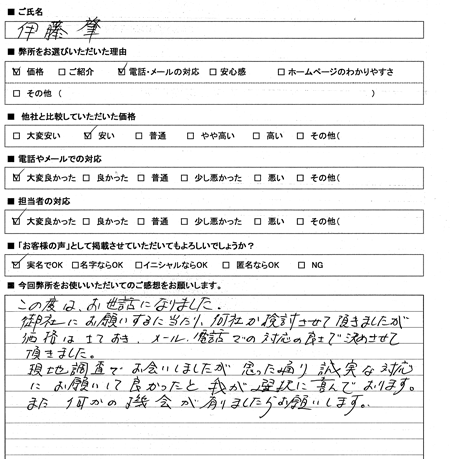 ■ ご氏名
伊藤 肇
■ 弊所をお選びいただいた理由
☑ 価格 □ ご紹介 ☑ 電話・メールの対応 □ 安心感 □ ホームページのわかりやすさ
□ その他 ( )
■ 他社と比較していただいた価格
□ 大変安い ☑ 安い □ 普通 □ やや高い □ 高い □ その他(
■ 電話やメールでの対応
☑ 大変良かった □ 良かった □ 普通 □ 少し悪かった □ 悪い □ その他(
■ 担当者の対応
☑ 大変良かった □ 良かった □ 普通 □ 少し悪かった □ 悪い □ その他(
■ 「お客様の声」として掲載させていただいてもよろしいでしょうか?
☑ 実名でOK □ 名字ならOK □ イニシャルならOK □ 匿名ならOK □ NG
■ 今回弊所をお使いいただいてのご感想をお願いします。
この度は、お世話になりました。
御社にお願いするに当たり、何社か検討させて頂きましたが
価格はさておき、メール、電話での対応の良さで決めさせて
頂きました。
現地調査でお会いしましたが思った通り誠実な対応
にお願いして良かったと我が選択に喜んでおります。
また何かの機会が有りましたらお願いします。